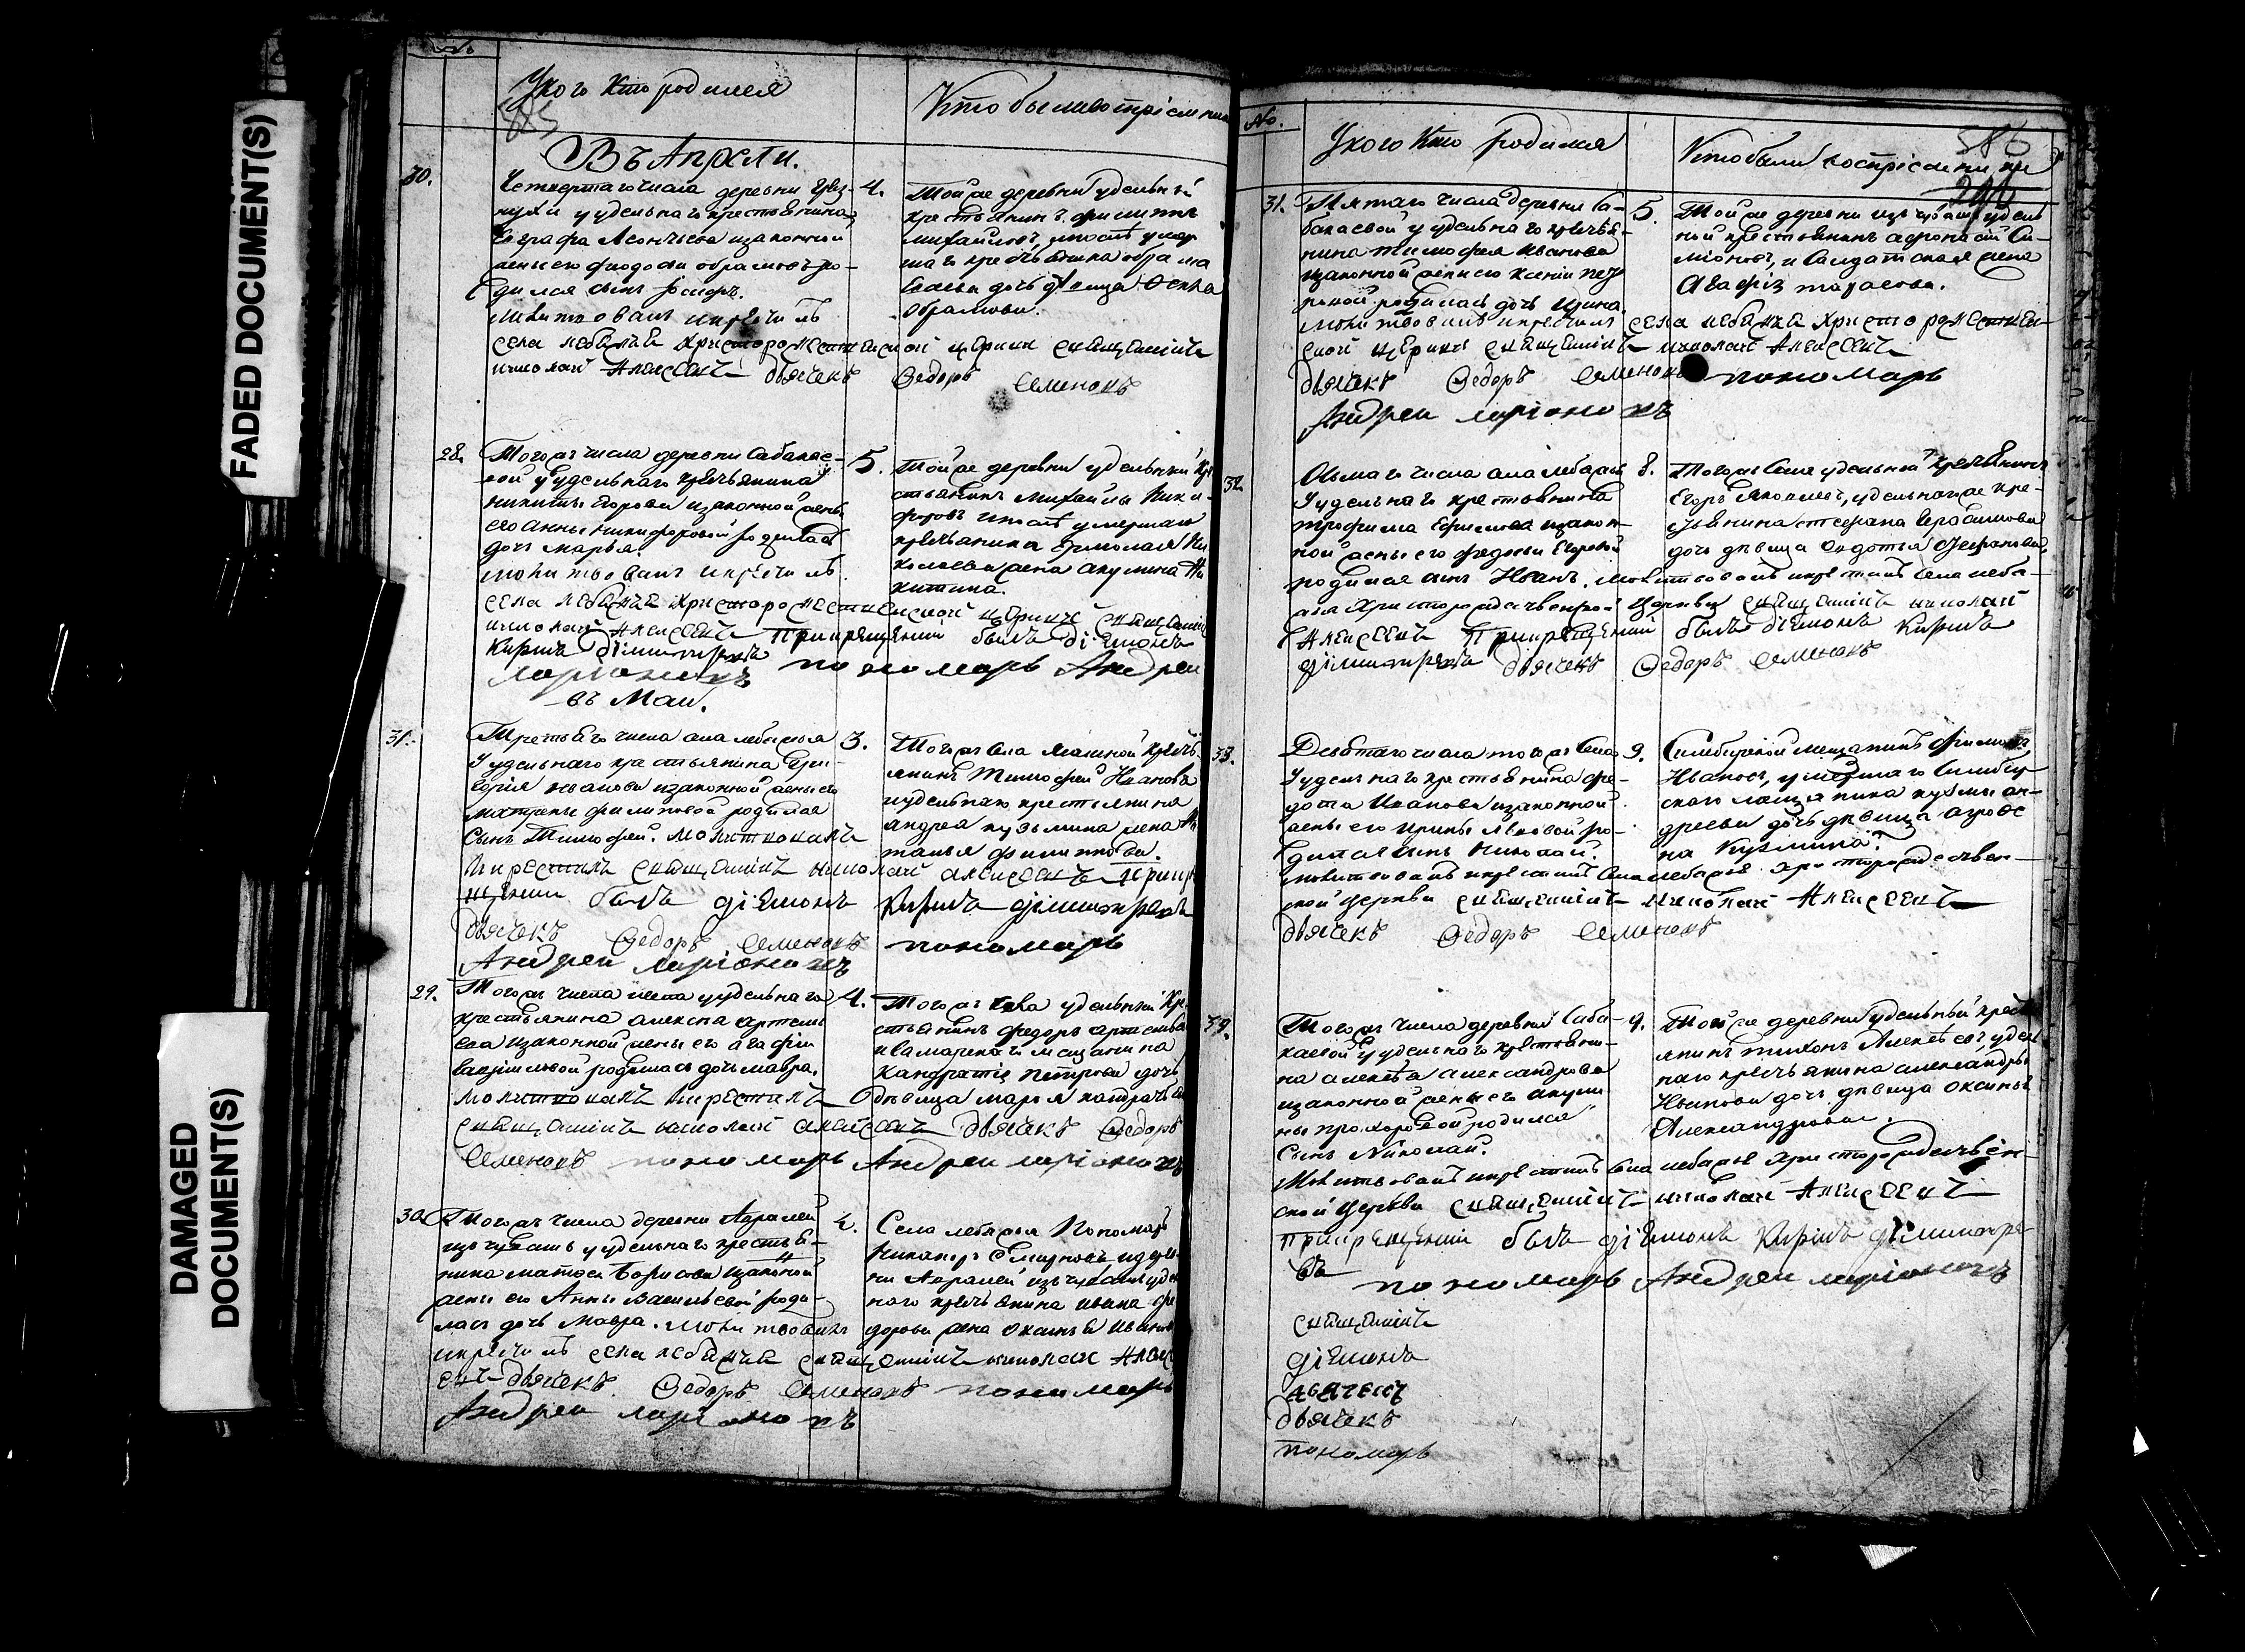 FADED DOCUMENT(S)
DAMAGED
DOCUMENT(S)
№
У кого кто родился
Кто были воспріемники
585
Въ Апрели.
30.
Четвертаго числа деревни
у удельнаго крестьянина
Евграфа Леонтьева изаконной
жены его Феодосьи
дился сынъ
молитвовалъ икрестилъ
села лебяжья христорождественской церкви священникъ
николай Алексеевъ дьячекъ Федоръ Семеновъ
4.
Тойже деревни удельный
крестьянинъ филиппъ
михайловъ,
шаго крестьянина
дочь девица
28.
Тогожъ числа деревни Сабакае-
вой у удельнаго крестьянина
никиты Егорова изаконной жены
его анны никифоровой родилась
дочь марья.
молитвовалъ икрестилъ
села лебяжья христорождественской церкви священникъ
николай Алексеевъ При крещеніи былъ діаконъ
Кирилъ Дімитріевъ пономарь Андреи
ларіоновъ
5.
Тойже деревни удельный кре-
стьянинъ Михайлы Ники-
форовъ умершаго
крестьянина Ермолая Ни
колаева жена акулина Ни
китина.
въ Маи.
31.
Третьяго числа села лебяжья
У удельнаго крестьянина Гри-
горія иванова изаконной жены его
матрены филиповой родился
Сынъ Тимофей. молитвовалъ
икрестилъ священникъ николай алексеевъ при кре
щеніи былъ діаконъ Кирилъ дімитріевъ
дьячекъ Федоръ Семеновъ пономарь
Андреи ларіоновъ
3.
Тогожъ села крестья
янинъ Тимофей Ивановъ
иудельнаго крестьянина
андрея кузьмина жена На
талья филиппова.
29.
Тогожъ числа села у удельнаго
крестьянина алексея артемь
ева изаконной жены его агафіи
родилась дочь мавра.
молитвовалъ икрестилъ
священникъ николай алексеевъ дьячекъ Федоръ
Семеновъ пономарь Андреи ларіоновъ
4.
Тогожъ села удельный кре
стьянинъ федоръ артемьевъ
мещанина
Кандратія Петрова дочь
девица марья кандратьева
30.
Тогожъ числа деревни
изъ чувашъ у удельнаго крестья-
нина матвея Борисова изаконной
жены его Анны Васильевой роди-
лась дочь Мавра. молитвовалъ
икрестилъ села лебяжья священникъ николай Алексе
евъ дьячекъ Федоръ Семеновъ пономарь
Андреи ларіоновъ
4.
Села лебяжья Пономарь
Никаноръ Смирновъ, идерев
ни изъ чувашъ удель
наго крестьянина ивана фе
дорова жена Оксинья Иванова
№.
У кого Кто родился
Кто были воспріемники
586
31.
Пятаго числа деревни Са-
бакаевой у удельнаго крестья-
нина тимофея иванова
изаконной жены его Ксеніи пет
ровой родилась дочь Ирина.
молитвовалъ икрестилъ села лебяжья христорождествен-
ской церкви священникъ николай Алексеевъ
дьячекъ Федоръ Семеновъ пономарь
Андреи ларіоновъ
5.
Тойже деревни изъ чувашъ удель
ной крестьянинъ афонасій Си-
міоновъ, и Салдатская жена
Агафія тарасова.
32.
Осьмаго числа села лебяжья
У удельнаго крестьянина
трофима Ефимова изакон
ной жены его федосьи Егоровой
родился сынъ Иванъ. молитвовалъ икрестилъ села лебя-
жья Христорождественской Церкви священникъ николай
Алексеевъ При крещеніи былъ діаконъ Кирилъ
дімитріевъ дьячекъ Федоръ Семеновъ
8.
Тогожъ Села удельной крестьянинъ
Егоръ Яковлевъ, удельнагоже кре-
стьянина стефана Герасимова
дочь девица Авдотья Стефанова,
33.
Девятаго числа тогожъ Села
У удельнаго крестьянина фе-
дота Иванова изаконной
жены его ирины львовой ро-
дился сынъ Николай.
молитвовалъ икрестилъ Села лебяжья христорождествен-
ской церкви священникъ николай Алексеевъ
дьячекъ Федоръ Семеновъ
9.
Симбирской мещанинъ
Ивановъ, умершаго Симбир
скаго мещанина кузмы ан-
дреева дочь девица
на Кузмина.
34.
Тогожъ числа деревни Саба-
каевой у удельнаго крестьяни-
на алексея александрова
изаконной жены его акули
ны прохоровой родился
Сынъ Николай.
Молитвовалъ икрестилъ села лебяжье христорождествен-
ской церкви священникъ николай Алексеевъ
При крещеніи былъ діаконъ Кирилъ дімитріе
въ пономарь Андреи ларіоновъ
9.
Тойже деревни удельный крест
янинъ тихонъ Алексеевъ, удель
наго крестьянина александра
Иванова дочь девица оксинья
Александрова.
священникъ
діаконъ
дьячекъ
дьячекъ
пономарь